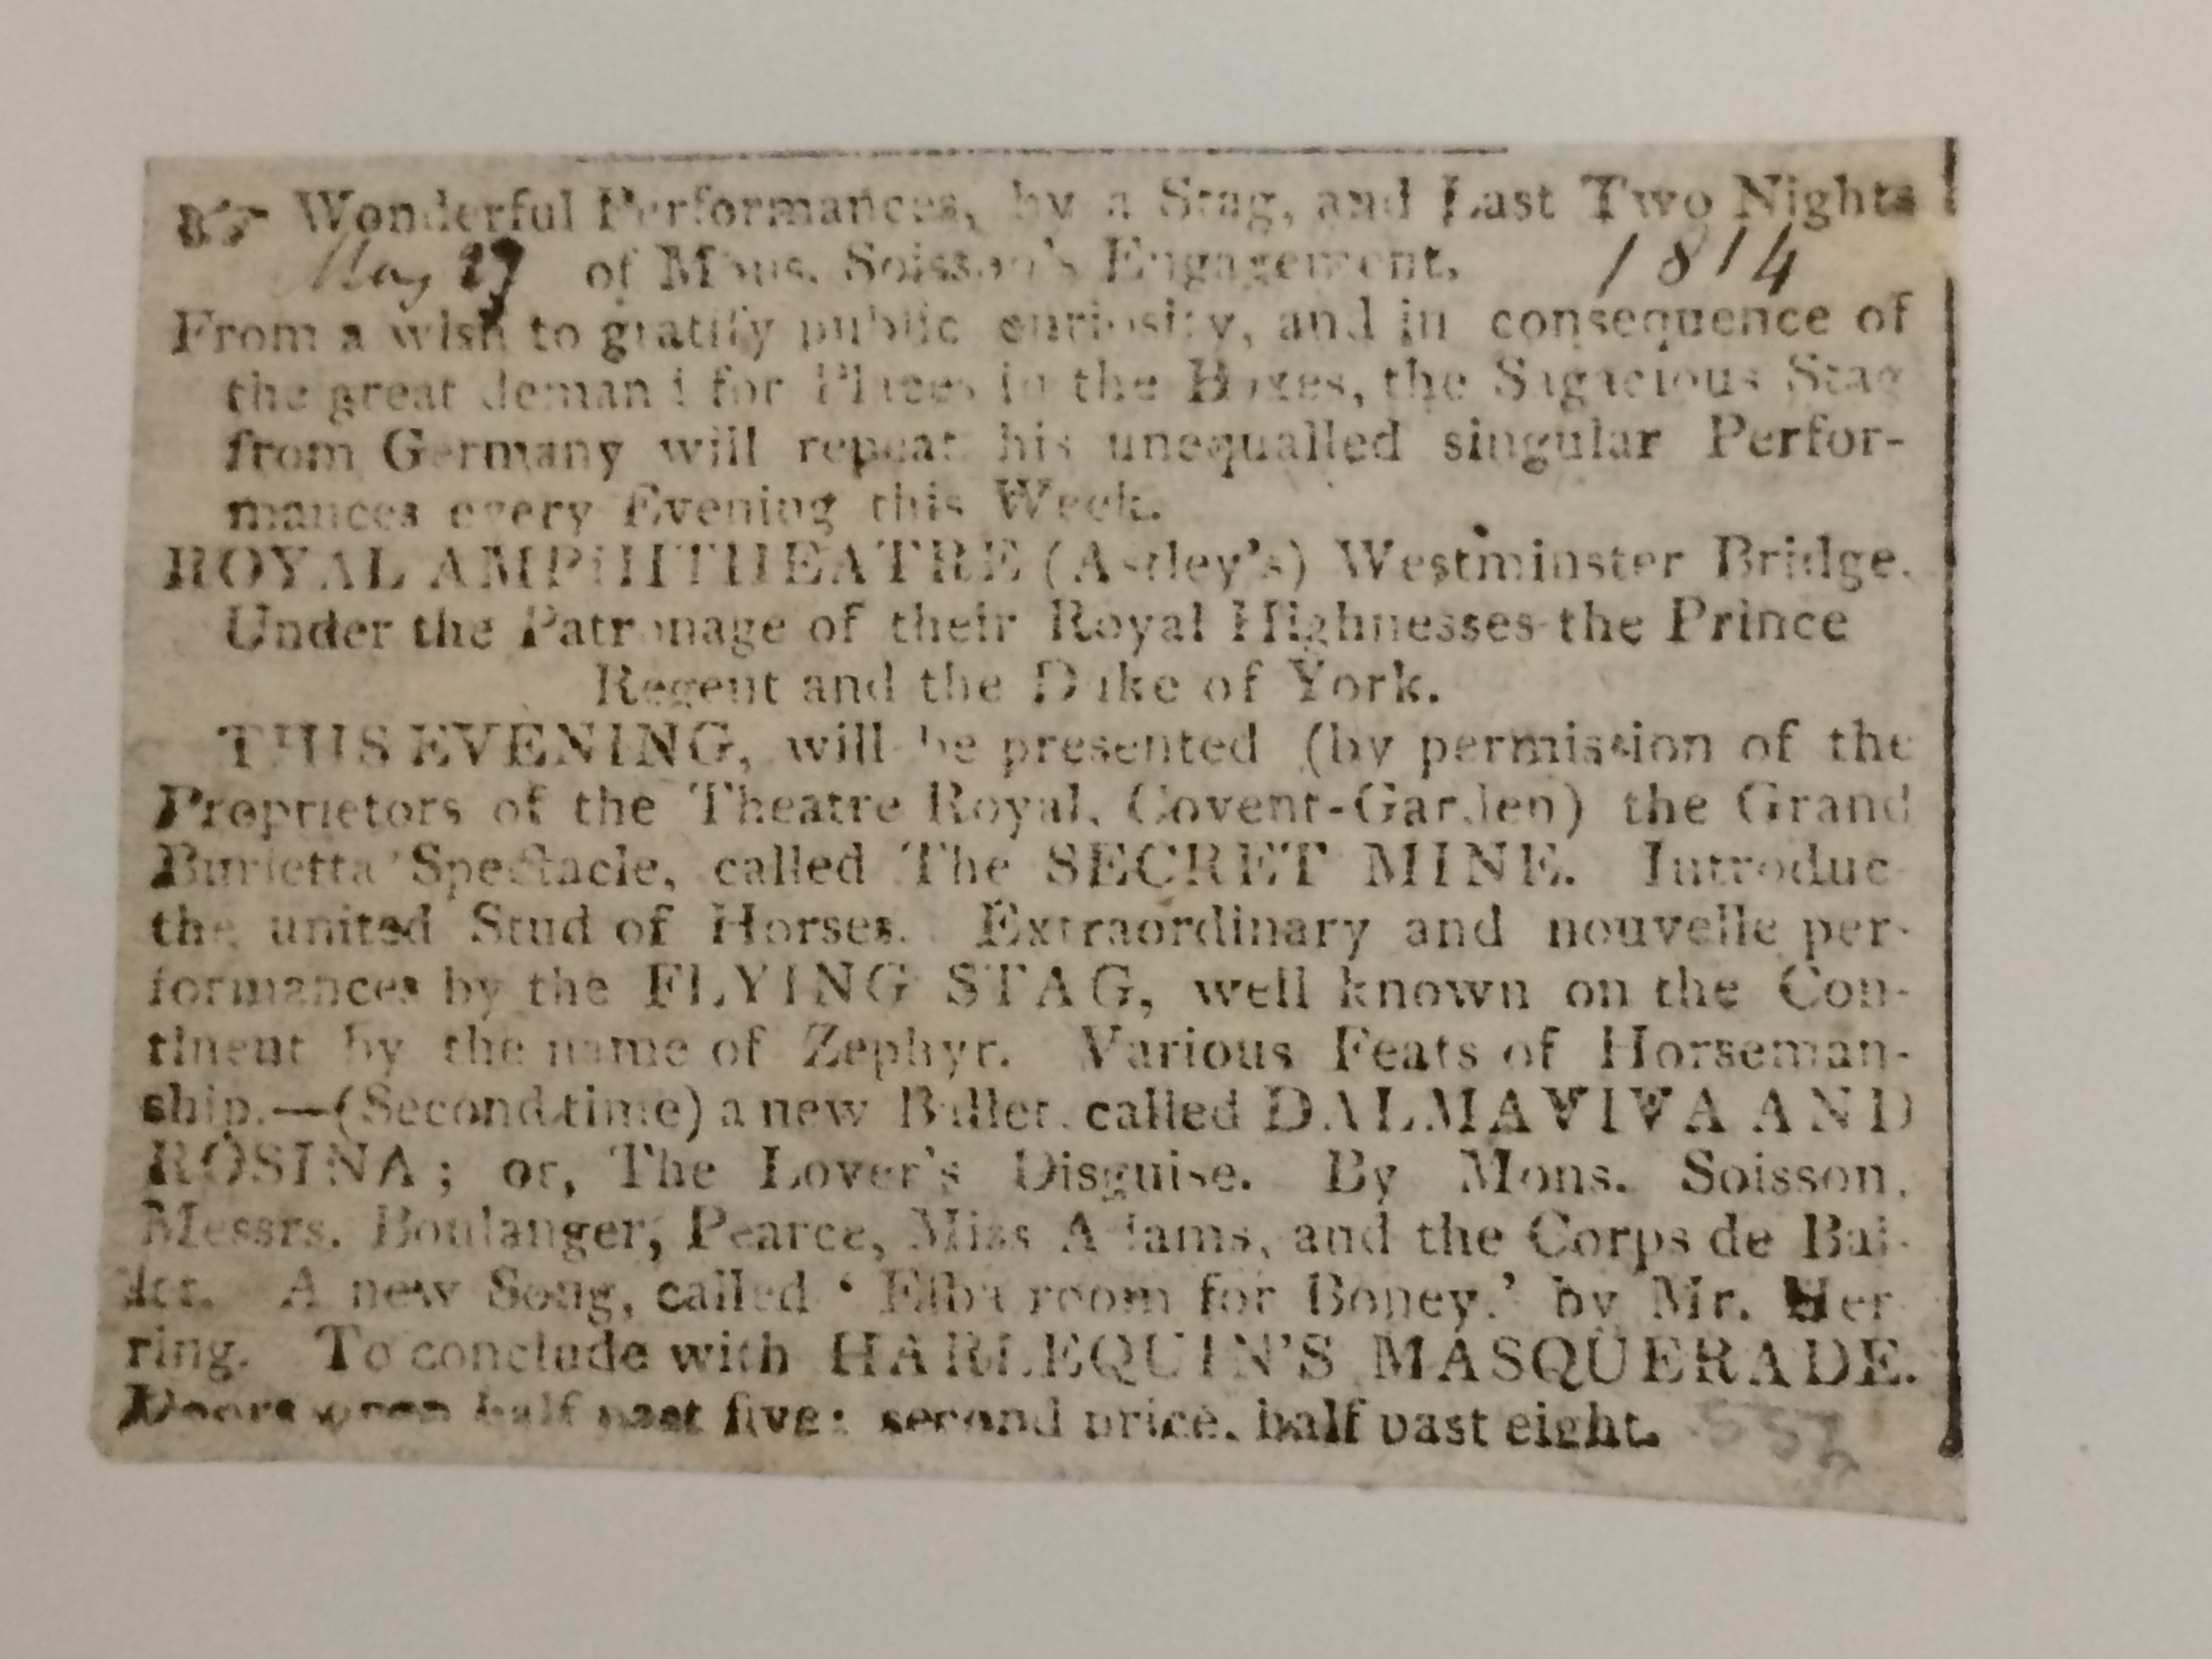 ☞ Wonderful Performances, by a Stag, and Last Two Nights
May 27 of Mons. Soisson's Engagement. 1814
From a wish to gratify public curiosity, and in consequence of
the great demand for Places in the Boxes, the Sagacious Stag
from Germany will repeat his unequalled singular Perfor-
mances every Evening this Week.
ROYAL AMPHITHEATRE (Astley's) Westminster Bridge.
Under the Patronage of their Royal Highnesses the Prince
Regent and the Duke of York.
THIS EVENING, will be presented (by permission of the
Proprietors of the Theatre Royal, Covent-Garden) the Grand
Burletta Spectacle, called The SECRET MINE. Introduc
the united Stud of Horses. Extraordinary and nouvelle per-
formances by the FLYING STAG, well known on the Con-
tinent by the name of Zephyr. Various Feats of Horseman-
ship.—(Second time) a new Ballet, called DALMAVIVA AND
ROSINA; or, The Lover's Disguise. By Mons. Soisson,
Messrs. Boulanger, Pearce, Miss Adams, and the Corps de Bal-
let. A new Song, called ' Elba room for Boney.' by Mr. Her
ring. To conclude with HARLEQUIN'S MASQUERADE.
Doors open half past five; second price, half past eight.